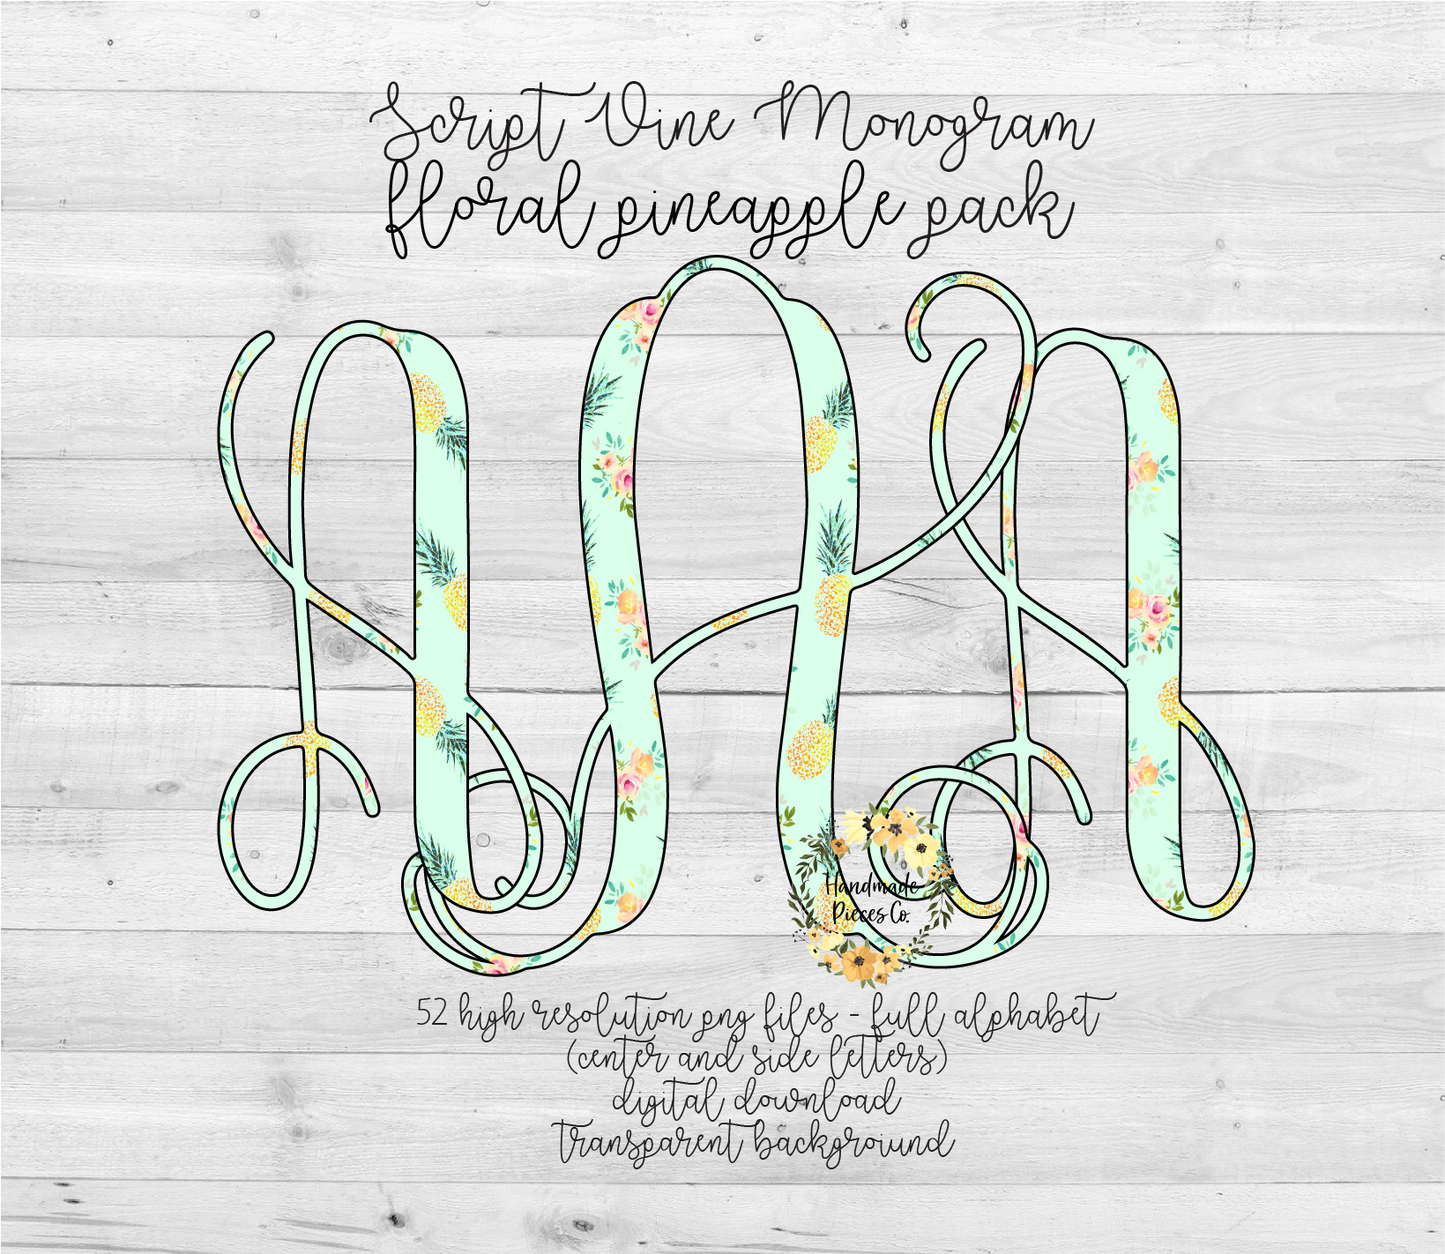 Script Vine Monogram
floral pineapple pack
AAA
Handmade
Pieces Co.
52 high resolution png files - full alphabet
(center and side letters)
digital download
transparent backgroiund